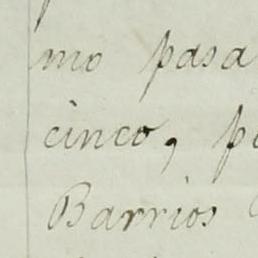 mo pasa
cinco, p
Barrios